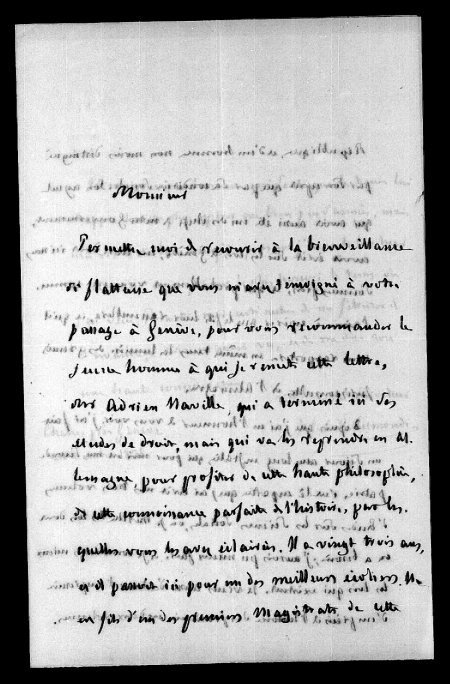 Monsieur
Permettez moi de recourir à la bienveillance
si flatteuse que vous m'avez témoigné à votre
passage à Genève, pour vous recommander le
jeune homme à qui je remets cette lettre,
Mr Adrien Naville, qui a terminé ici ses
etudes de droit, mais qui va les reprendre en Al
lemagne, pour profiter de cette haute philosophie,
de cette connoissance parfaite de l'histoire, par les
quelles vous les avez éclairées. Il a vingt trois ans,
et il passoit ici pour un des meilleurs écoliers. Il
est fils d'un des premiers Magistrats de cette